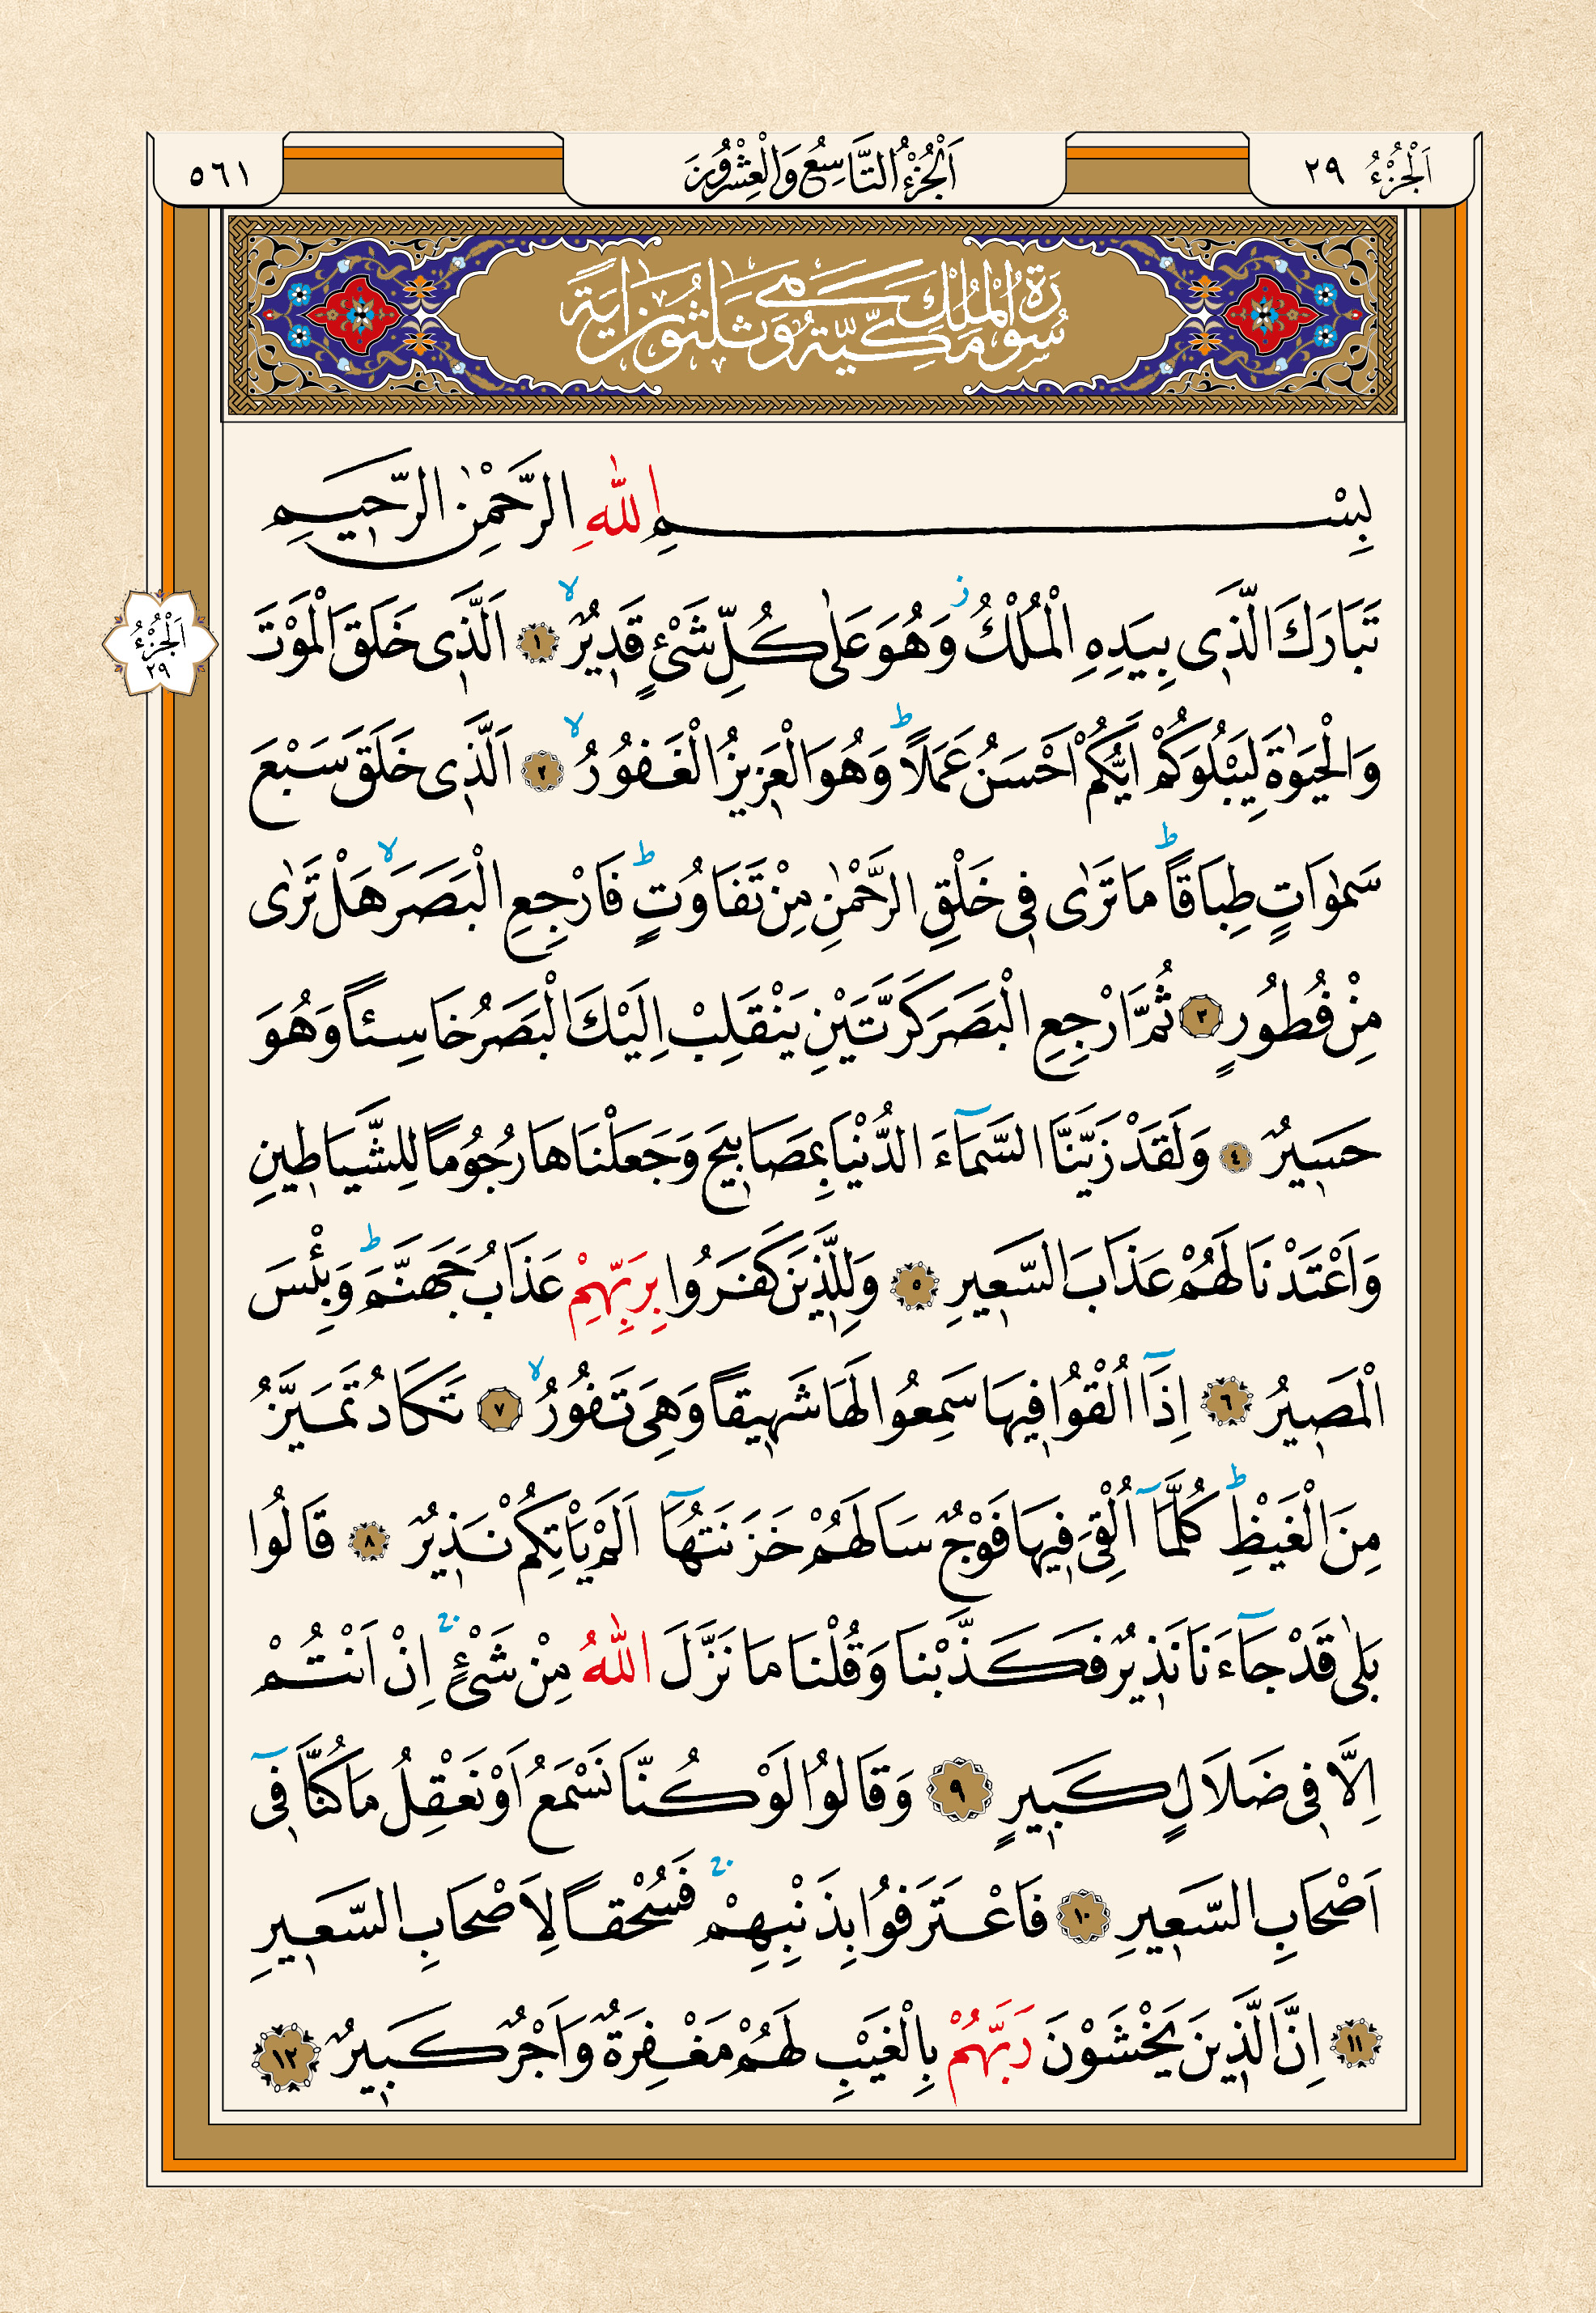 اَلْجُزْءُ ٢٩
اَلْجُزْءُ التَّاسِعُ وَالْعِشْرُونَ
٥٦١
سُورَةُ الْمُلْكِ مَكِّيَّةٌ وَهِىَ ثَلٰثُونَ اٰيَةً
بِسْمِ اللّٰهِ الرَّحْمٰنِ الرَّحٖيمِ
تَبَارَكَ الَّذٖى بِيَدِهِ الْمُلْكُؗ وَهُوَ عَلٰى كُلِّ شَیْءٍ قَدٖيرٌۙ ١ اَلَّذٖى خَلَقَ الْمَوْتَ
اَلْجُزْءُ ٢٩
وَالْحَيٰوةَ لِيَبْلُوَكُمْ اَيُّكُمْ اَحْسَنُ عَمَلاًؕ وَهُوَ الْعَزٖيزُ الْغَفُورُۙ ٢ اَلَّذٖى خَلَقَ سَبْعَ
سَمٰوَاتٍ طِبَاقاًؕ مَا تَرٰى فٖى خَلْقِ الرَّحْمٰنِ مِنْ تَفَاوُتٍؕ فَارْجِعِ الْبَصَرَۙ هَلْ تَرٰى
مِنْ فُطُورٍ ٣ ثُمَّ ارْجِعِ الْبَصَرَ كَرَّتَيْنِ يَنْقَلِبْ اِلَيْكَ الْبَصَرُ خَاسِئاً وَهُوَ
حَسٖيرٌ ٤ وَلَقَدْ زَيَّنَّا السَّمَٓاءَ الدُّنْيَا بِمَصَابٖيحَ وَجَعَلْنَاهَا رُجُوماً لِلشَّيَاطٖينِ
وَاَعْتَدْنَا لَهُمْ عَذَابَ السَّعٖيرِ ٥ وَلِلَّذٖينَ كَفَرُوا بِرَبِّهِمْ عَذَابُ جَهَنَّمَؕ وَبِئْسَ
الْمَصٖيرُ ٦ اِذَٓا اُلْقُوا فٖيهَا سَمِعُوا لَهَا شَهٖيقاً وَهِىَ تَفُورُۙ ٧ تَكَادُ تَمَيَّزُ
مِنَ الْغَيْظِؕ كُلَّمَٓا اُلْقِىَ فٖيهَا فَوْجٌ سَاَلَهُمْ خَزَنَتُهَٓا اَلَمْ يَاْتِكُمْ نَذٖيرٌ ٨ قَالُوا
بَلٰى قَدْ جَٓاءَنَا نَذٖيرٌ فَكَذَّبْنَا وَقُلْنَا مَا نَزَّلَ اللّٰهُ مِنْ شَیْءٍۚ اِنْ اَنْتُمْ
اِلَّا فٖى ضَلَالٍ كَبٖيرٍ ٩ وَقَالُوا لَوْ كُنَّا نَسْمَعُ اَوْ نَعْقِلُ مَا كُنَّا فٖٓى
اَصْحَابِ السَّعٖيرِ ١٠ فَاعْتَرَفُوا بِذَنْبِهِمْۚ فَسُحْقاً لِاَصْحَابِ السَّعٖيرِ
١١ اِنَّ الَّذٖينَ يَخْشَوْنَ رَبَّهُمْ بِالْغَيْبِ لَهُمْ مَغْفِرَةٌ وَاَجْرٌ كَبٖيرٌ ١٢